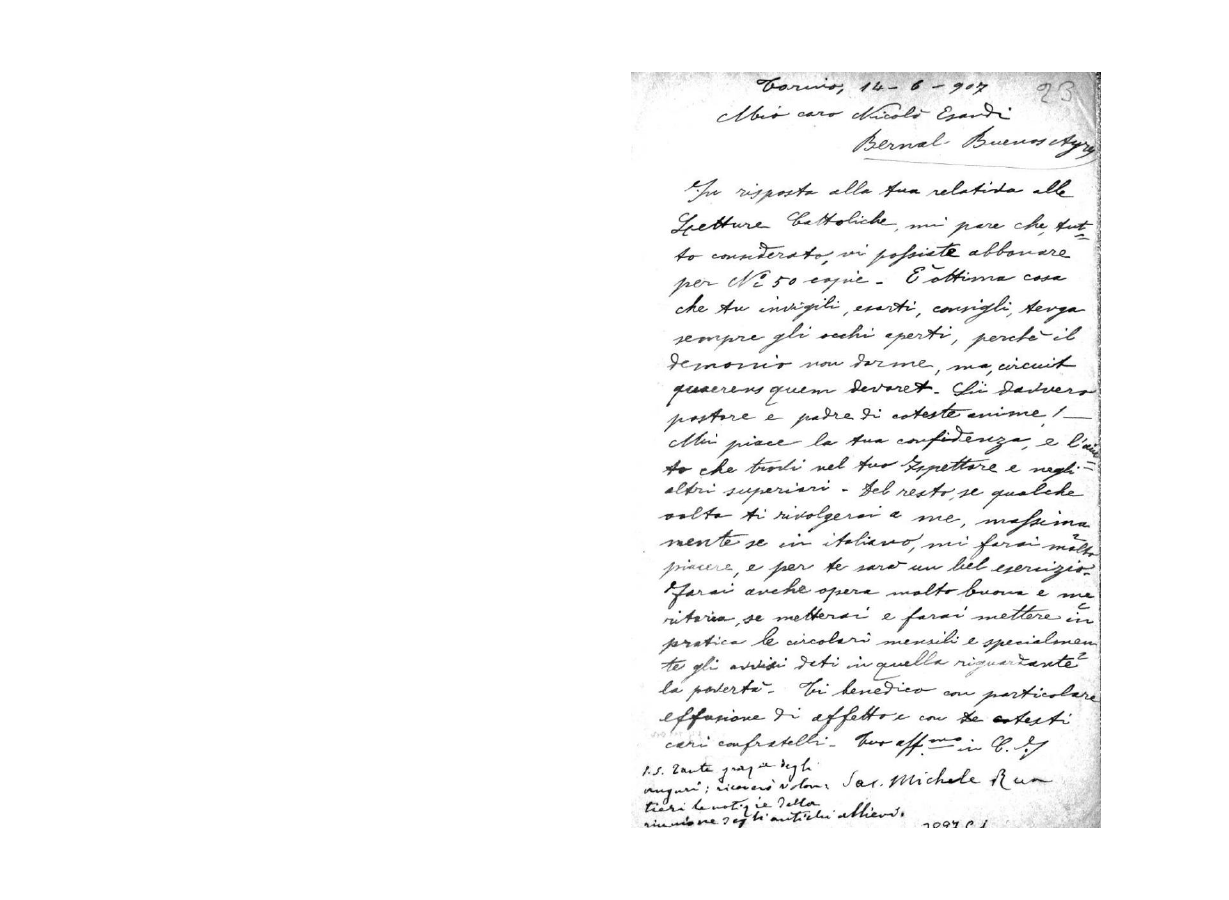 Torino, 14 - 6 - 907
23
Mio caro Nicolò Esandi
Bernal - Buenos Ayres
In risposta alla tua relativa alle
Letture Cattoliche, mi pare che, tut=
to considerato, vi possiate abbonare
per No 50 copie - È ottima cosa
che tu invigili, esorti, consigli, tenga
sempre gli occhi aperti, perchè il
demonio non dorme, ma, circuit
quaerens quem devoret - Sii davvero
pastore e padre di coteste anime! —
Mi piace la tua confidenza, e l'aiu=
to che trovi nel tuo Ispettore e negli
altri superiori - Del resto, se qualche
volta ti rivolgerai a me, massima
mente se in italiano, mi farai molto
piacere, e per te sarà un bel esercizio.
Farai anche opera molto buona e me
ritoria, se metterai e farai mettere in
pratica le circolari mensili e specialmen
te gli avvisi dati in quella riguardante
la povertà - Ti benedico con particolare
effusione di affetto e con te cotesti
cari confratelli - Tuo aff.mo in C. J.
P.S. Tante grazie degli
auguri; riceverò volon:
tieri le notizie della
riunione degli antichi allievi.
Sac. Michele Rua